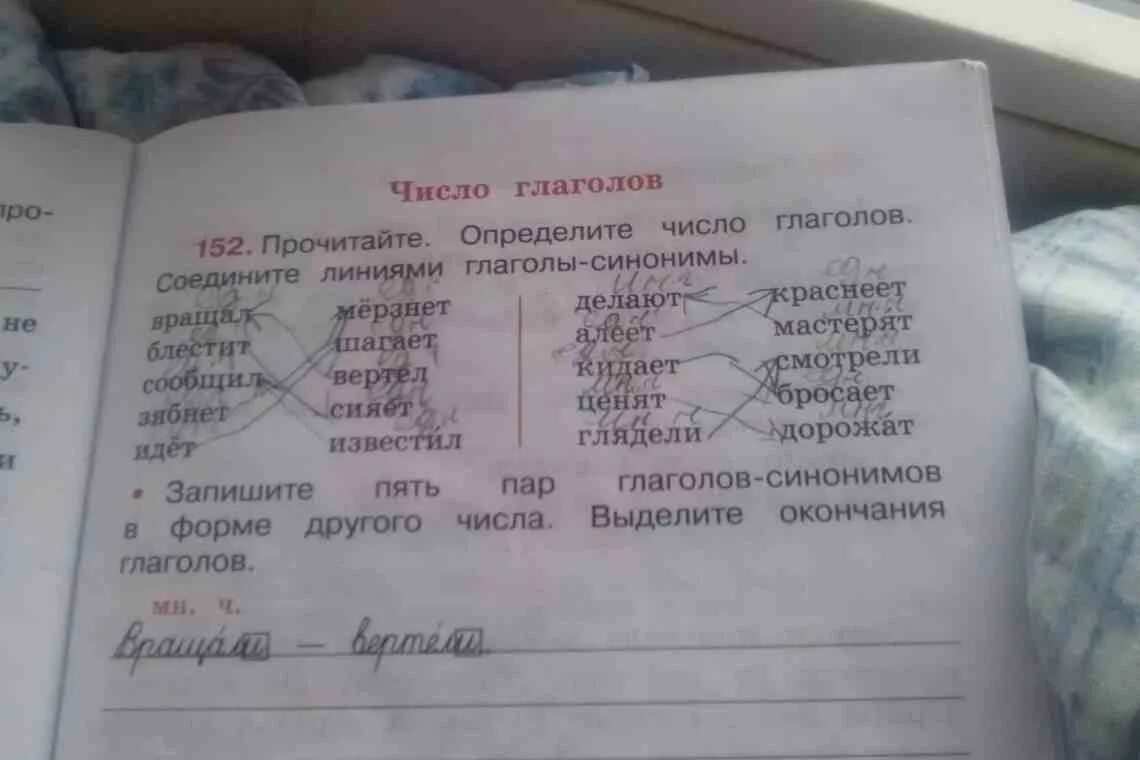 про-
не
у-
ь,
и
Число глаголов
152. Прочитайте. Определите число глаголов.
Соедините линиями глаголы-синонимы.
вращал мёрзнет делают краснеет
блестит шагает алеет мастерят
сообщил вертел кидает смотрели
зябнет сияет ценят бросает
идёт известил глядели дорожат
• Запишите пять пар глаголов-синонимов
в форме другого числа. Выделите окончания
глаголов.
мн. ч.
Вращали — вертели.